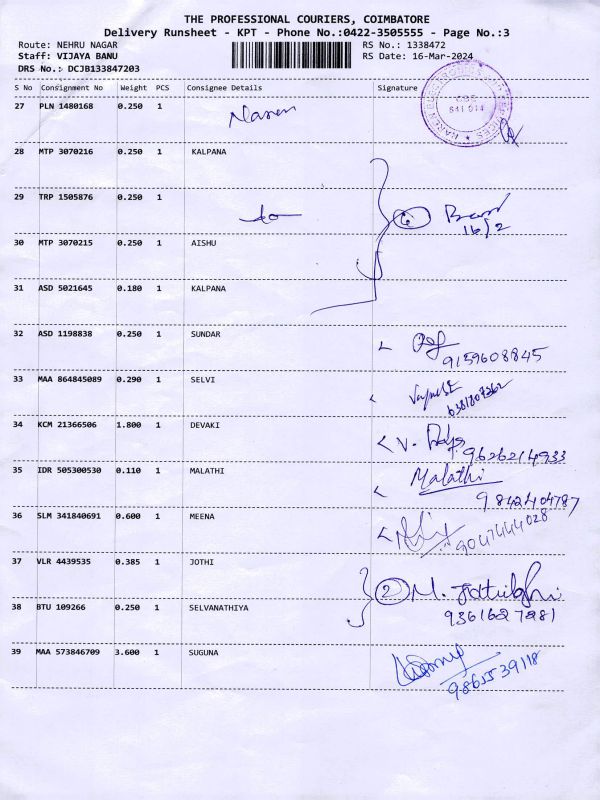 THE PROFESSIONAL COURIERS, COIMBATORE
Delivery Runsheet - KPT - Phone No.:0422-3505555 - Page No.:3
Route: NEHRU NAGAR RS No.: 1338472
Staff: VIJAYA BANU RS Date: 16-Mar-2024
DRS No.: DCJB133847203
S No Consignment No Weight PCS Consignee Details Signature
27 PLN 1480168 0.250 1
28 MTP 3070216 0.250 1 KALPANA
29 TRP 1505876 0.250 1
6
16/2
30 MTP 3070215 0.250 1 AISHU
31 ASD 5021645 0.180 1 KALPANA
32 ASD 1198838 0.250 1 SUNDAR
9159608845
33 MAA 864845089 0.290 1 SELVI
34 KCM 21366506 1.800 1 DEVAKI
9626214933
35 IDR 505300530 0.110 1 MALATHI Malathi
9842404787
36 SLM 341840691 0.600 1 MEENA
9047444028
37 VLR 4439535 0.385 1 JOTHI
2 M.
9361627281
38 BTU 109266 0.250 1 SELVANATHIYA
39 MAA 573846709 3.600 1 SUGUNA
9865539118